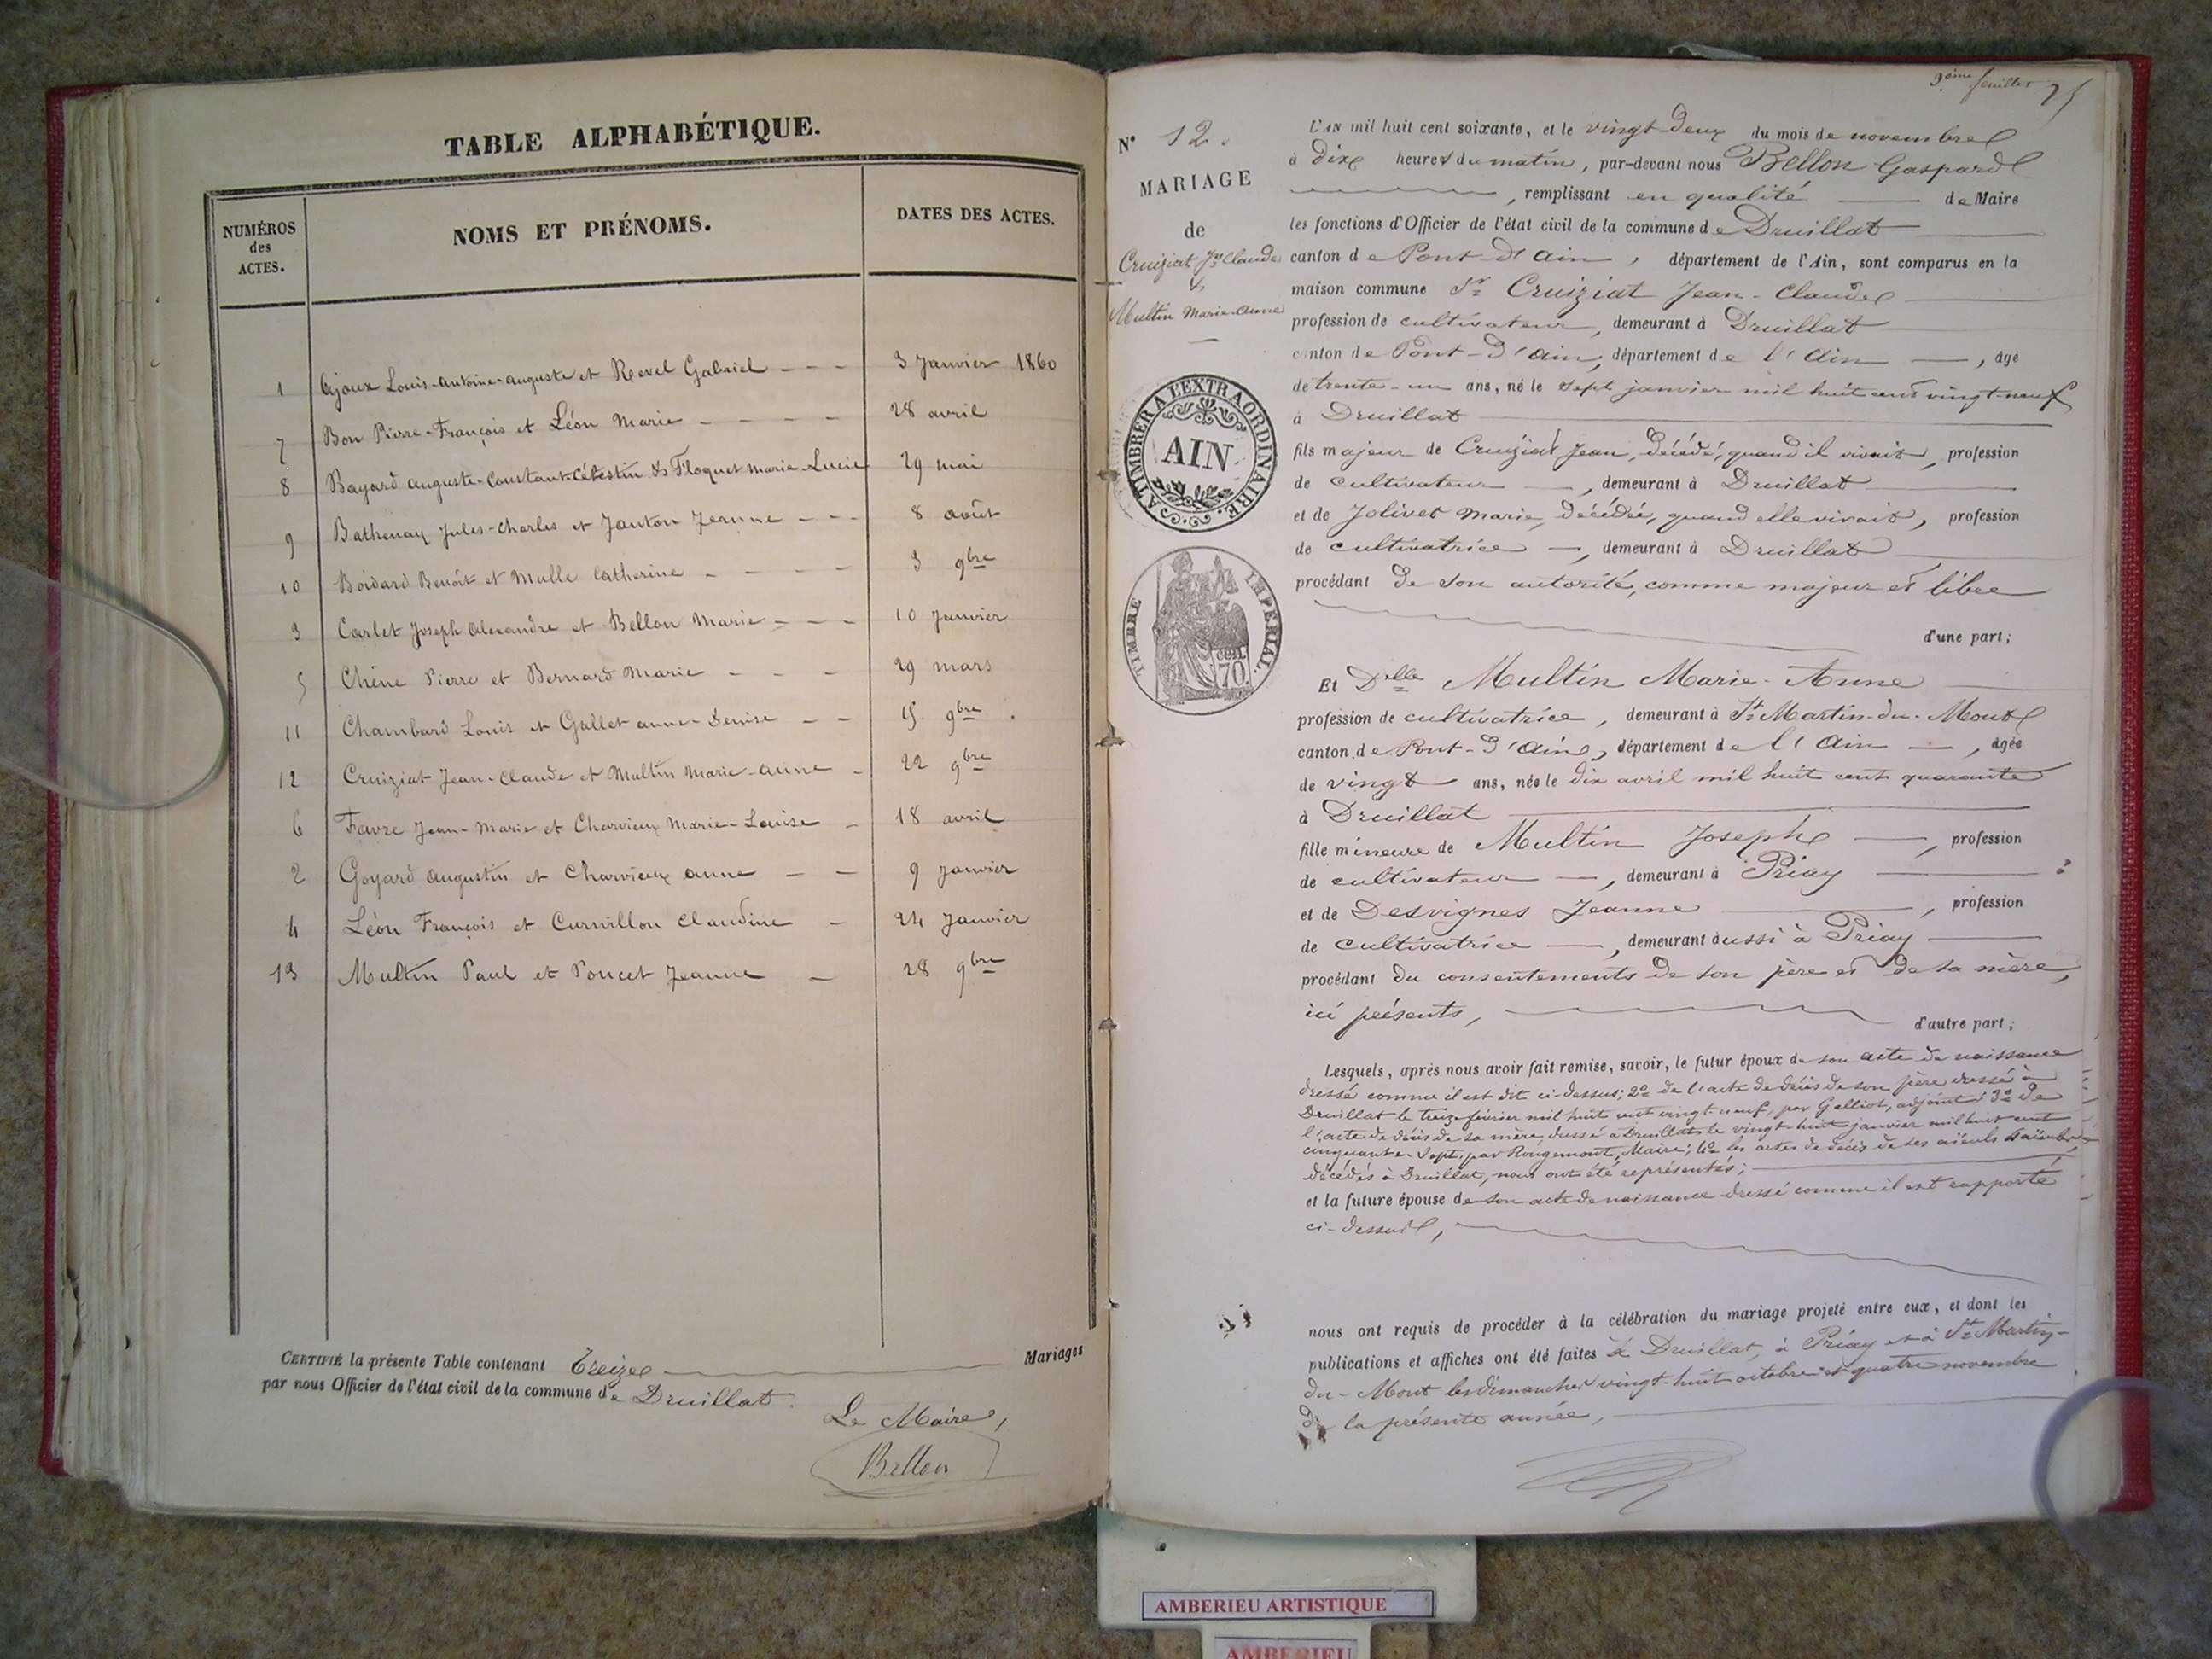 TABLE ALPHABÉTIQUE.
NUMÉROS des ACTES.
NOMS ET PRÉNOMS.
DATES DES ACTES.
1 Ajoux Louis-Antoine-Auguste et Revel Gabriel - - - 3 Janvier 1860
7 Bon Pierre-François et Léon Marie - - - - 28 avril
8 Bayard Auguste-Constant-Célestin & Floquet Marie-Lucie 29 mai
9 Bathenay Jules-Charles et Janton Jeanne - - - 8 août
10 Boidard Benoît et Mulle Catherine - - - - 3 9bre
3 Carlet Joseph Alexandre et Bellon Marie - - - 10 Janvier
5 Chêne Pierre et Bernard Marie - - - 29 mars
11 Chambard Louis et Gallet Anne-Denise - - 15 9bre.
12 Cruiziat Jean-Claude et Multin Marie-Anne - 22 9bre
6 Favre Jean-Marie et Charvieux Marie-Louise - 18 avril
2 Goyard Augustin et Charvieux Anne - - 9 Janvier
4 Léon François et Curnillon Claudine - 24 Janvier
13 Multin Paul et Poncet Jeanne - 28 9bre
CERTIFIÉ la présente Table contenant Treize Mariages
par nous Officier de l'état civil de la commune de Druillat.
Le Maire,
Bellon
3ème feuillet 75
N° 12.
MARIAGE
de
Cruiziat Jn Claude
&
Multin Marie-Anne
A TIMBRER A L'EXTRAORDINAIRE.
AIN
TIMBRE IMPERIAL.
CENT. 70.
L'AN mil huit cent soixante, et le vingt-deux du mois de novembre
à dix heures du matin, par-devant nous Bellon Gaspard
, remplissant en qualité de Maire
les fonctions d'Officier de l'état civil de la commune de Druillat
canton de Pont-d'Ain, département de l'Ain, sont comparus en la
maison commune Sr Cruiziat Jean-Claude
profession de cultivateur, demeurant à Druillat
canton de Pont-d'Ain, département de l'Ain, âgé
de trente-un ans, né le sept janvier mil huit cent vingt-neuf
à Druillat
fils majeur de Cruiziat Jean, décédé, quand il vivait, profession
de cultivateur, demeurant à Druillat
et de Jolivet Marie, décédée, quand elle vivait, profession
de cultivatrice, demeurant à Druillat
procédant de son autorité, comme majeur et libre
d'une part;
Et Delle Multin Marie-Anne
profession de cultivatrice, demeurant à St Martin-du-Mont
canton de Pont-d'Ain, département de l'Ain, âgée
de vingt ans, née le dix avril mil huit cent quarante
à Druillat
fille mineure de Multin Joseph, profession
de cultivateur, demeurant à Priay
et de Desvignes Jeanne, profession
de cultivatrice, demeurant aussi à Priay
procédant du consentement de son père et de sa mère,
ici présents,
d'autre part;
Lesquels, après nous avoir fait remise, savoir, le futur époux de son acte de naissance
dressé comme il est dit ci-dessus; 2° de l'acte de décès de son père dressé à
Druillat le treize février mil huit cent vingt-neuf, par Galliot, adjoint; 3° de
l'acte de décès de sa mère, dressé à Druillat le vingt-huit janvier mil huit cent
cinquante-sept, par Rougemont, Maire; 4° les actes de décès de ses aïeuls & aïeules
décédés à Druillat, nous ont été représentés;
et la future épouse de son acte de naissance dressé comme il est rapporté
ci-dessus,
nous ont requis de procéder à la célébration du mariage projeté entre eux, et dont les
publications et affiches ont été faites à Druillat, à Priay et à St Martin-
du-Mont les dimanches vingt-huit octobre et quatre novembre
de la présente année,
AMBERIEU ARTISTIQUE
AMBERIEU